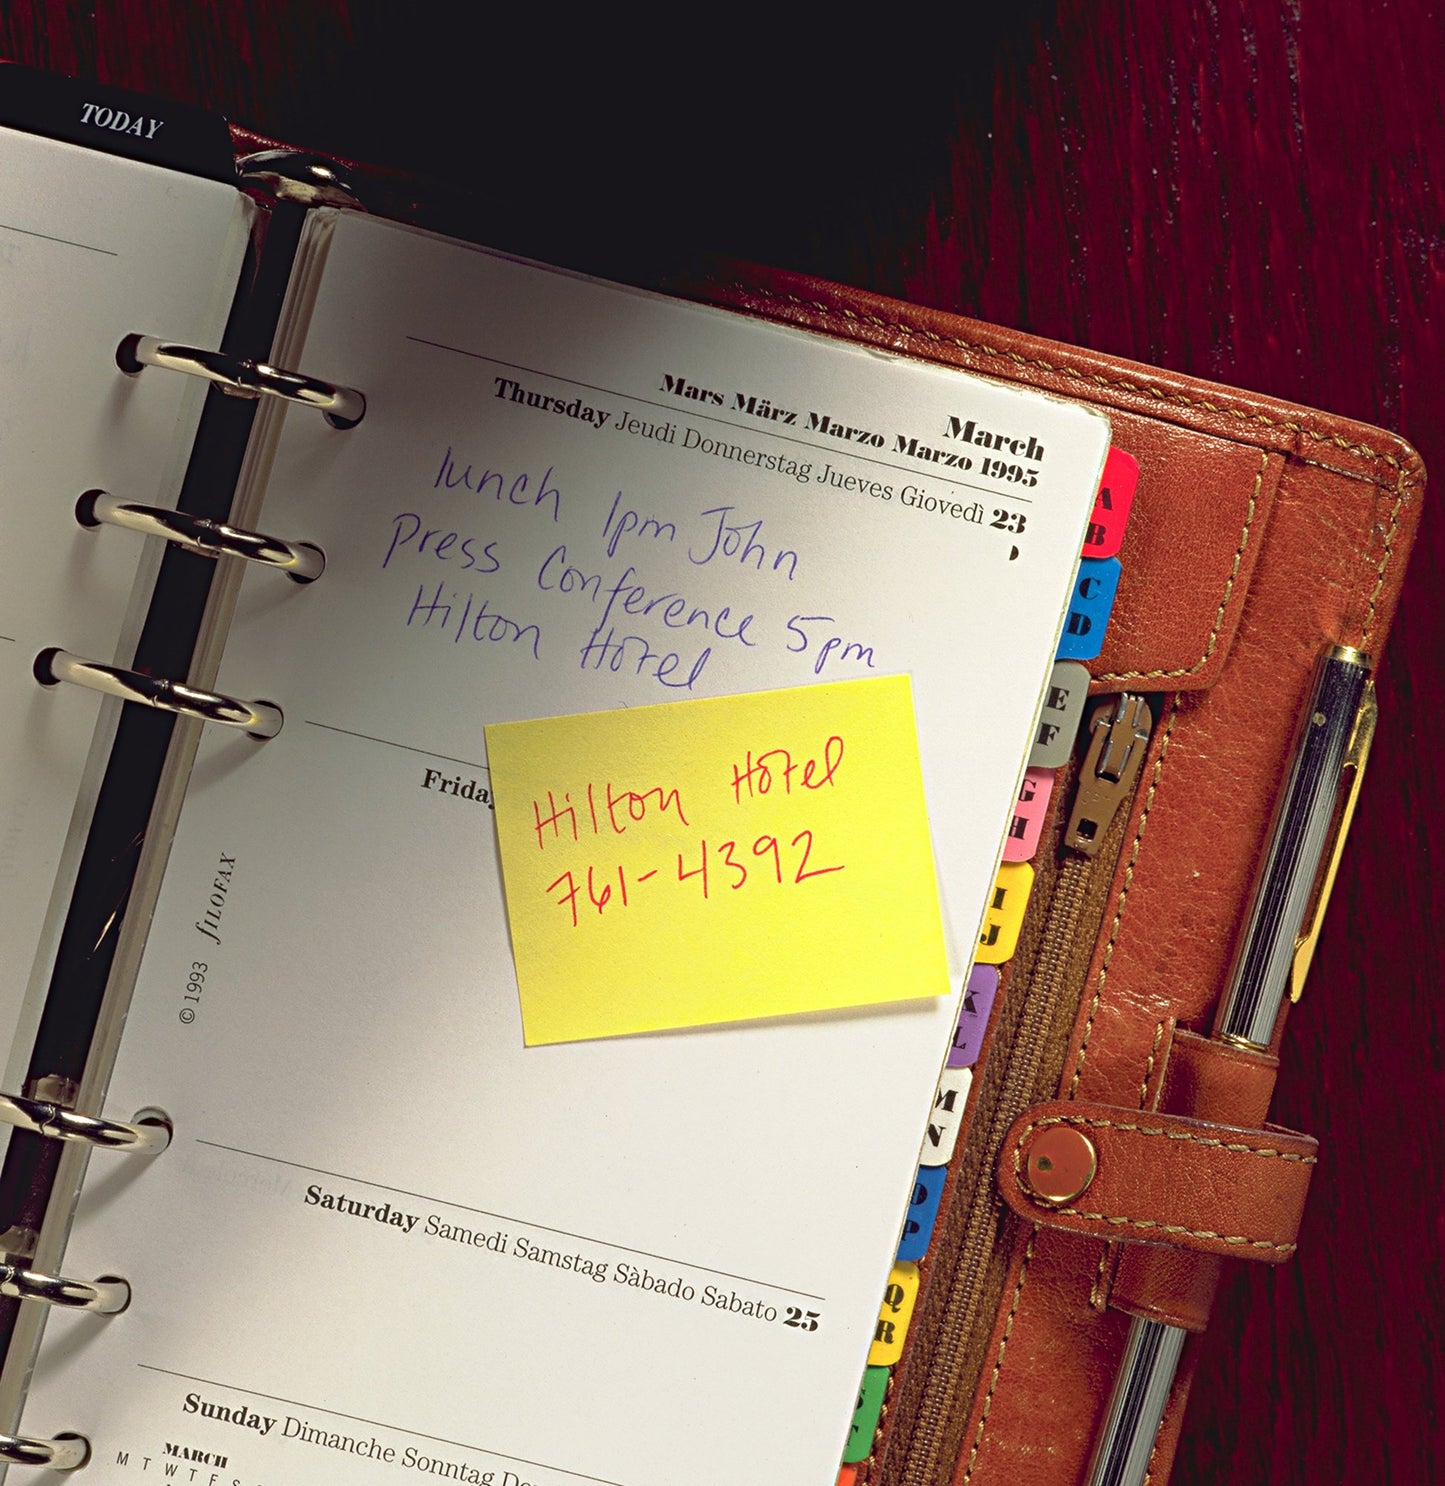 TODAY
March
Mars März Marzo Marzo 1995
Thursday Jeudi Donnerstag Jueves Giovedì 23
lunch 1pm John
Press Conference 5pm
Hilton Hotel
Friday
Hilton Hotel
761-4392
© 1993 fILOFAX
Saturday Samedi Samstag Sàbado Sabato 25
Sunday Dimanche Sonntag
MARCH
M T W T F S
A
B
C
D
E
F
G
H
I
J
K
L
M
N
O
P
Q
R
S
T